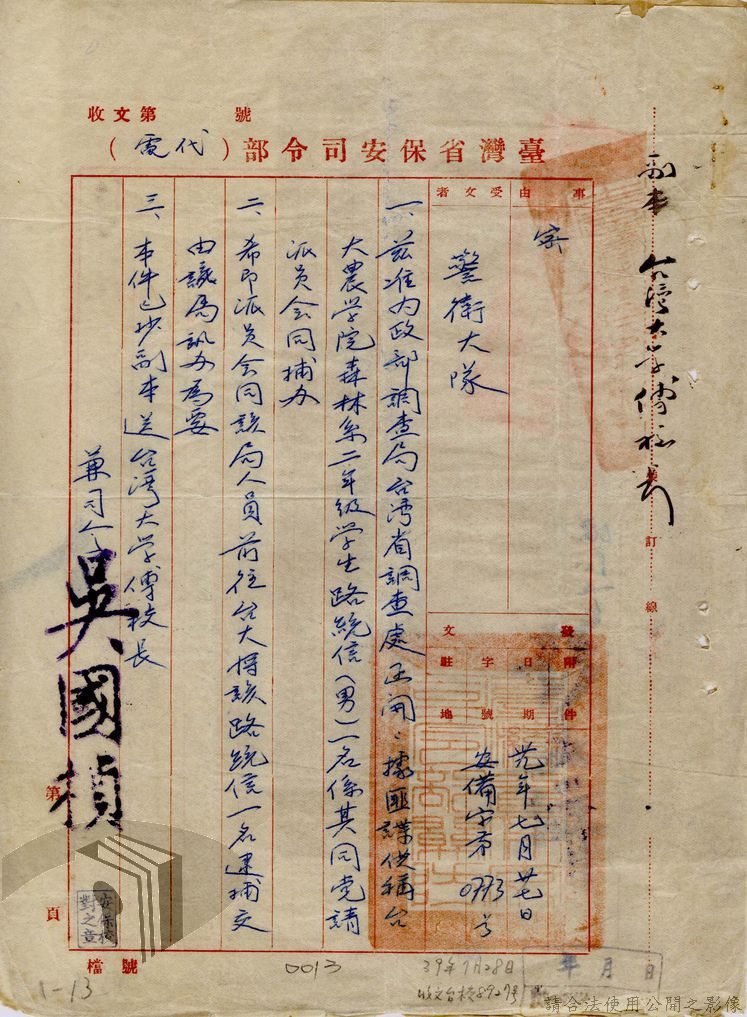 收文第　　號
臺灣省保安司令部（代電）
副本 台灣大學傅校長
裝訂線
事由
受文者
警衛大隊
發文
附件
日期
字號
駐地
卅九年七月廿七日
安備字第0773号
一、茲准内政部調查局台湾省調查處函開：據匪諜供稱台
大農学院森林系二年级学生路統信（男）一名係其同党請
派员会同捕办
二、希即派员会同該局人员前往台大将該路統信一名逮捕交
由該局訊办為要
三、本件已抄副本送台湾大学傅校長
兼司令
吳國楨
安保校對之章
第　　頁
檔號
0013
39年7月28日
收文台校8927号
年月日
1-13
請合法使用公開之影像